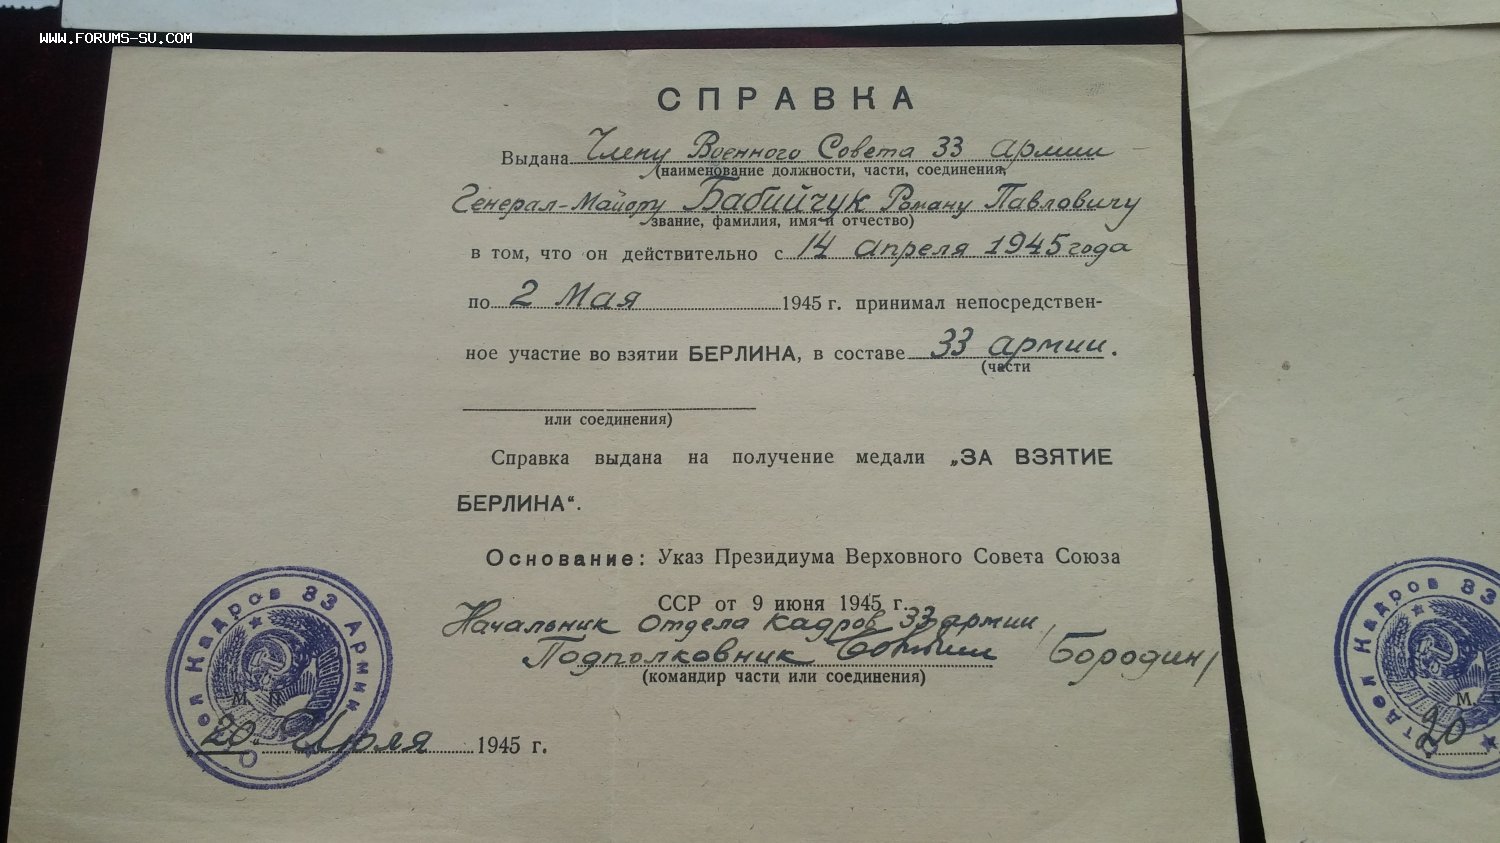 WWW.FORUMS-SU.COM
СПРАВКА
Выдана Члену Военного Совета 33 армии
(наименование должности, части, соединения,
Генерал-Майору Бабийчук Роману Павловичу
звание, фамилия, имя и отчество)
в том, что он действительно с 14 апреля 1945 года
по 2 Мая 1945 г. принимал непосредствен-
ное участие во взятии БЕРЛИНА, в составе 33 армии.
(части
или соединения)
Справка выдана на получение медали „ЗА ВЗЯТИЕ
БЕРЛИНА“.
Основание: Указ Президиума Верховного Совета Союза
ССР от 9 июня 1945 г.
Начальник отдела кадров 33 армии
Подполковник /Бородин/
(командир части или соединения)
Отдел Кадров 33 Армии
М. П.
„20“ Июля 1945 г.
Отдел Кадров 33
М.
20